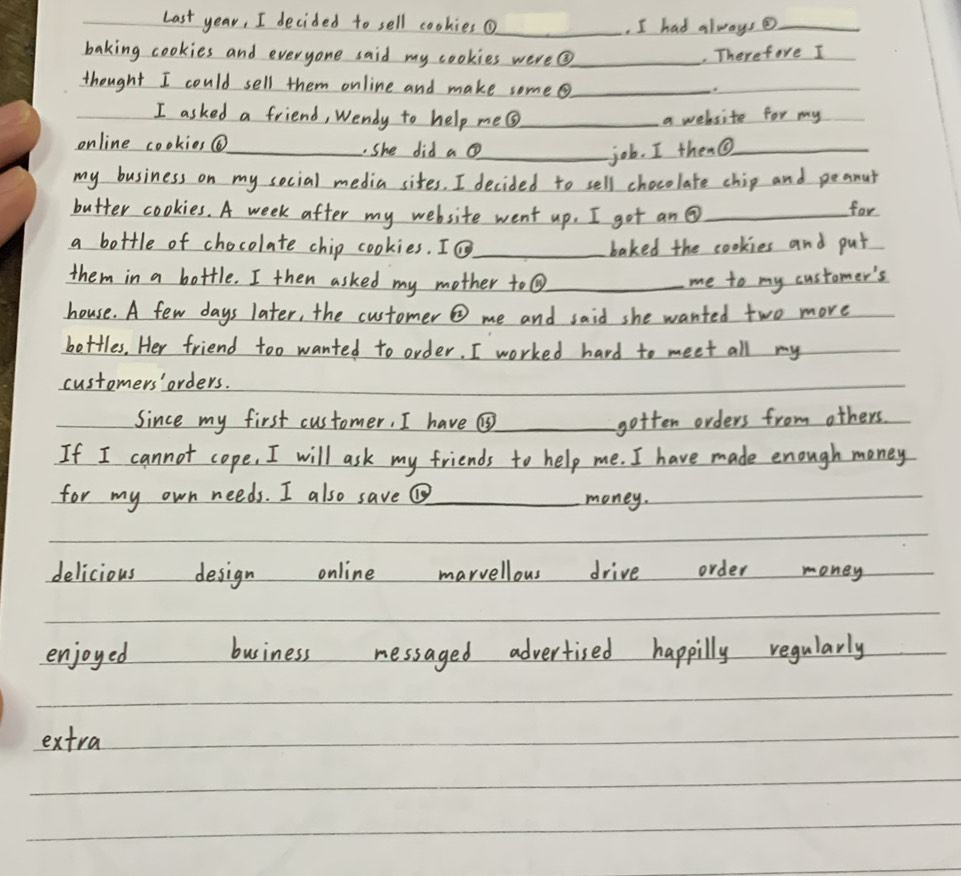 Last year, I decided to sell cookies ① ________. I had always ② ________
baking cookies and everyone said my cookies were ③ ________. Therefore I
thought I could sell them online and make some ④ ________.
I asked a friend, Wendy to help me ⑤ ________ a website for my
online cookies ⑥ ________. She did a ⑦ ________ job. I then ⑧ ________
my business on my social media sites. I decided to sell chocolate chip and peanut
butter cookies. A week after my website went up, I got an ⑨ ________ for
a bottle of chocolate chip cookies. I ⑩ ________ baked the cookies and put
them in a bottle. I then asked my mother to ⑪ ________ me to my customer's
house. A few days later, the customer ⑫ me and said she wanted two more
bottles. Her friend too wanted to order. I worked hard to meet all my
customers' orders.
Since my first customer, I have ⑬ ________ gotten orders from others.
If I cannot cope, I will ask my friends to help me. I have made enough money
for my own needs. I also save ⑭ ________ money.
delicious design online marvellous drive order money
enjoyed business messaged advertised happilly regularly
extra